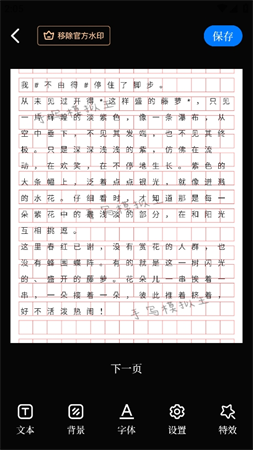 移除官方水印
保存
我#不由得#停住了脚步。
从未见过开得*这样盛的藤萝*，只见
一片辉煌的淡紫色，像一条瀑布，从
空中垂下，不见其发端，也不见其终
极。只是深深浅浅的紫，仿佛在流
动，在欢笑，在不停地生长。紫色的
大条幅上，泛着点点银光，就像迸溅
的水花。仔细看时，才知道那是每一
朵紫花中的最浅淡的部分，在和阳光
互相挑逗。
这里春红已谢，没有赏花的人群，也
没有蜂围蝶阵。有的就是这一树闪光
的、盛开的藤萝。花朵儿一串挨着一
串，一朵接着一朵，彼此推着挤着，
好不活泼热闹！
手写模拟王
手写模拟王
手写模拟王
下一页
文本
背景
字体
设置
特效